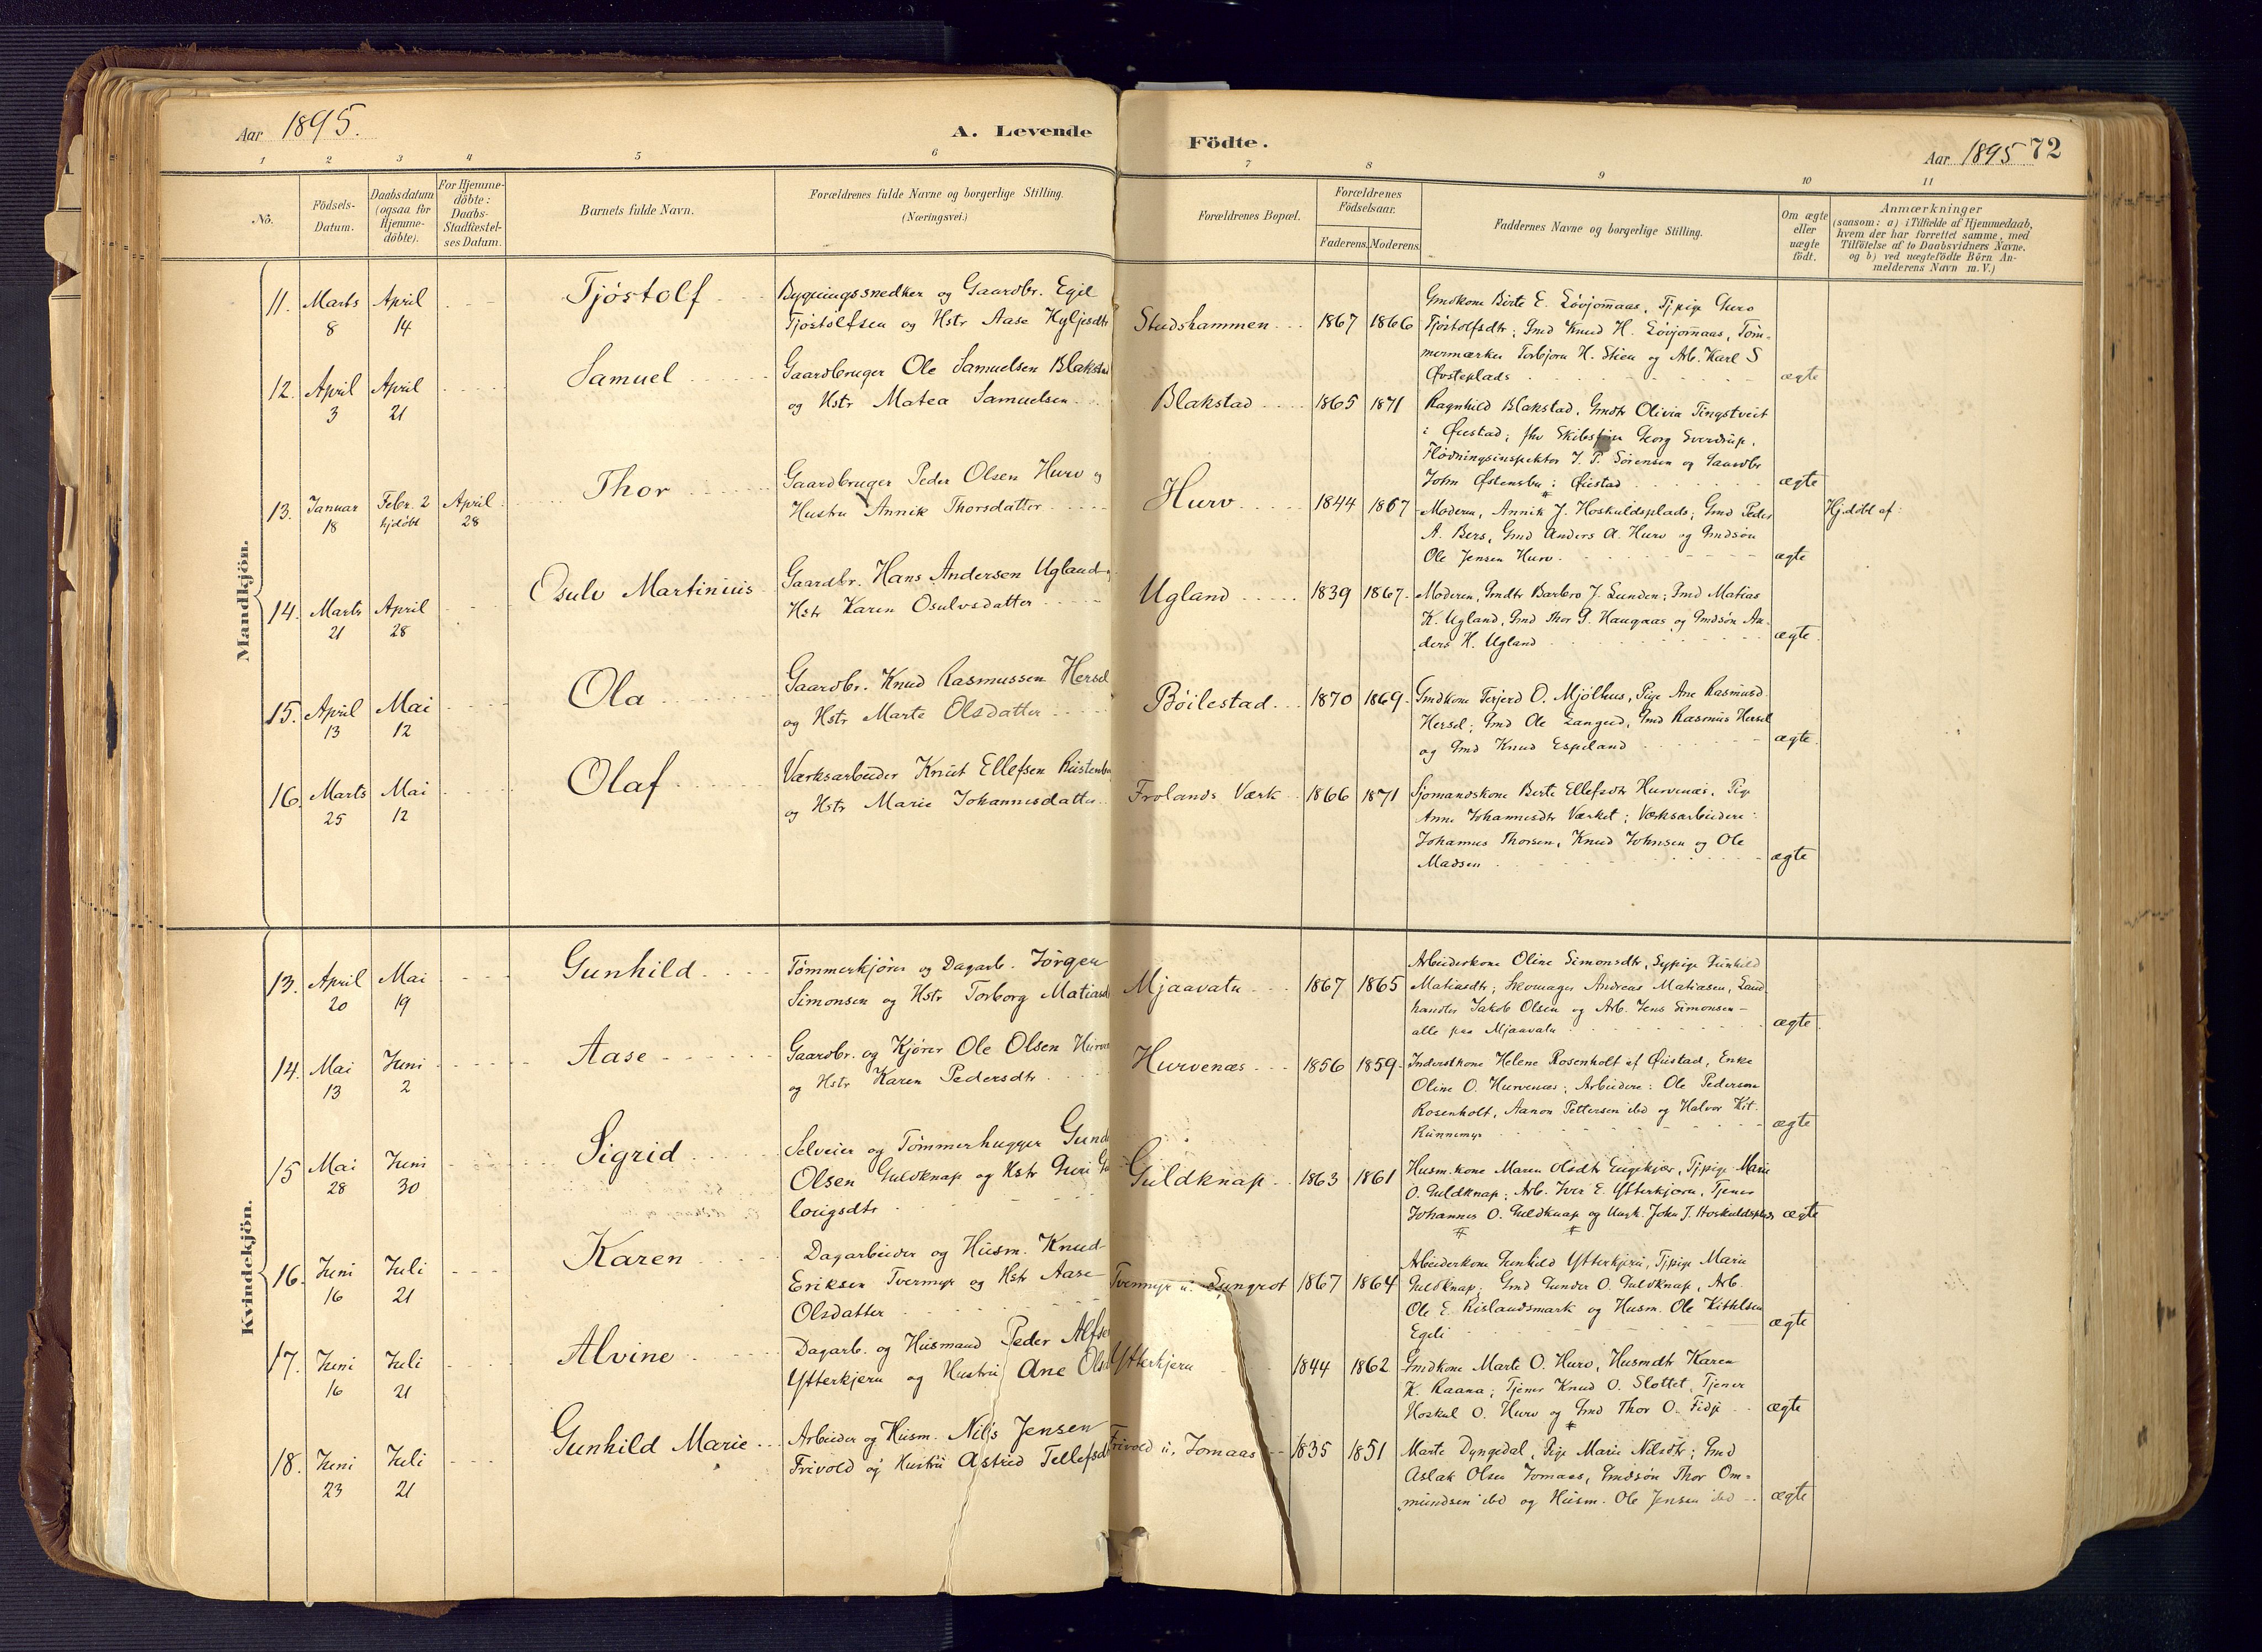 Aar 1895.
A. Levende
Födte.
Aar 1895 72
1 2 3 4 5 6 7 8 9 10 11
No.
Födsels-
Datum.
Daabsdatum
(ogsaa for
Hjemme-
döbte).
For Hjemme-
döbte:
Daabs-
Stadfæstel-
ses Datum.
Barnets fulde Navn.
Forældrenes fulde Navne og borgerlige Stilling.
(Næringsvei.)
Forældrenes Bopæl.
Forældrenes
Födselsaar.
Faderens. Moderens.
Faddernes Navne og borgerlige Stilling.
Om ægte
eller
uægte
födt.
Anmærkninger
(saasom: a) i Tilfælde af Hjemmedaab,
hvem der har forrettet samme, med
Tilföielse af to Daabsvidners Navne.
og b) ved uægtefödte Börn An-
melderens Navn m.V.)
Mandkjön.
11. Marts 8 April 14
Tjöstolf
Bygningssnedker og Gaardbr. Egil
Tjöstolfsen og Hstr Aase
Studshammen 1867 1866
Gmdkone Birte E. Lövjomaas, Tjpige Guro
Tjöstolfsdtr; Gmd Knud H. Lövjomaas, Töm-
mermærker Torbjörn H. Stien og Arb. Karl S
Övsteplads
ægte
12. April 3 April 21
Samuel
Gaardbruger Ole Samuelsen Blakstad
og Hstr Matea Samuelsen
Blakstad 1865 1871
Ragnhild Blakstad, Gmdtr Olivia Tingstveit
i Öiestad; Georg Sverdrup,
Flödningsinspektör J. P. Sörensen og Gaardbr
John Östensbu i Öiestad
ægte
13. Januar 18 Febr. 2 hjdöbt April 28
Thor
Gaardbruger Peder Olsen Hurv og
Hustru Annik Thorsdatter
Hurv 1844 1867
Moderen, Annik J. Hoskuldsplads; Gmd Peder
A. Bers, Gmd Anders A. Hurv og Gmdsön
Ole Jensen Hurv.
ægte
Hj.döbt af:
14. Marts 21 April 28
Osulv Martinius
Gaardbr. Hans Andersen Ugland og
Hstr Karen Osulvsdatter
Ugland 1839 1867
Moderen, Gmdtr Barbro J. Lunden; Gmd Matias
K. Ugland, Gmd Thor G. Haugaas og Gmdsön An-
ders H. Ugland
ægte
15. April 13 Mai 12
Ola
Gaardbr. Knud Rasmussen Hersel
og Hstr Marte Olsdatter
Böilestad 1870 1869
Gmdkone Terjerd O. Mjölhus, Pige Ane Rasmusd.
Hersel; Gmd Ole Langeid, Gmd Rasmus Hersel
og Gmd Knud Espeland
ægte
16. Marts 25 Mai 12
Olaf
Værksarbeider Knut Ellefsen
og Hstr Marie Johannesdatter
Frolands Værk 1866 1871
Sjömandskone Berte Ellefsdtr Hurvenæs, Pige
Anne Johannesdtr Værket; Værksarbeidere:
Johannes Thorsen, Knud Johnsen og Ole
Madsen
ægte
Kvindekjön.
13. April 20 Mai 19
Gunhild
Tömmerkjörer og Dagarb. Jörgen
Simonsen og Hstr Torborg Matiasd
Mjaavatn 1867 1865
Arbeiderkone Oline Simonsdtr, Sypige Gunhild
Matiasdtr; Skomager Andreas Matiasen, Land-
handler Jakob Olsen og Arb. Jens Simonsen -
alle paa Mjaavatn
ægte
14. Mai 13 Juni 2
Aase
Gaardbr. og Kjörer Ole Olsen
og Hstr Karen Pedersdtr
Hurvenæs 1856 1859
Inderstkone Helene Rosenholt af Öiestad, Enke
Oline O. Hurvenæs; Arbeidere: Ole Pederson
Rosenholt, Aanon Pettersen ibd og Halvor Kit.
Runnemyr
ægte
15 Mai 28 Juni 30
Sigrid
Selveier og Tömmerhugger
Olsen Guldknap og Hstr Guri
Guldknap 1863 1861
Husm.kone Maren Olsdtr Engekjær, Tjpige Marie
O. Guldknap; Arb. Iver E. Ytterkjærn, Tjener
Johannes O. Guldknap og Ungk. John T. Hoskuldsplads
ægte
16. Juni 16 Juli 21
Karen
Dagarbeider og Husm. Knud
Eriksen Tvermyr og Hstr Aase
Olsdatter
Tvermyr u. 1867 1864
Arbeiderkone Gunhild Ytterkjern, Tjpige Marie
Guldknap; Gmd Gunder O. Guldknap, Arb.
Ole E. Rislandsmark og Husm. Ole Kittelsen
Egeli
ægte
17. Juni 16 Juli 21
Alvine
Dagarb. og Husmand Peder
Ytterkjern og Hustru Ane
Ytterkjern 1844 1862
Gmdkone Marte O. Hurv, Husmdtr Karen
K. Raana; Tjener Knud O. Slottet, Tjener
Hoskul O. Hurv og Gmd Thor O. Fidje
ægte
18. Juni 23 Juli 21
Gunhild Marie
Arbeider og Husm. Nils Jensen
Frivold og Hustru Astrid Tellefsd
Frivold u. Jomaas 1835 1851
Marte Dyngedal, Pige Marie Nilsdtr; Gmd
Aslak Olsen Jomaas, Gmdsön Thor Om-
mundsen ibd og Husm. Ole Jensen ibd
ægte